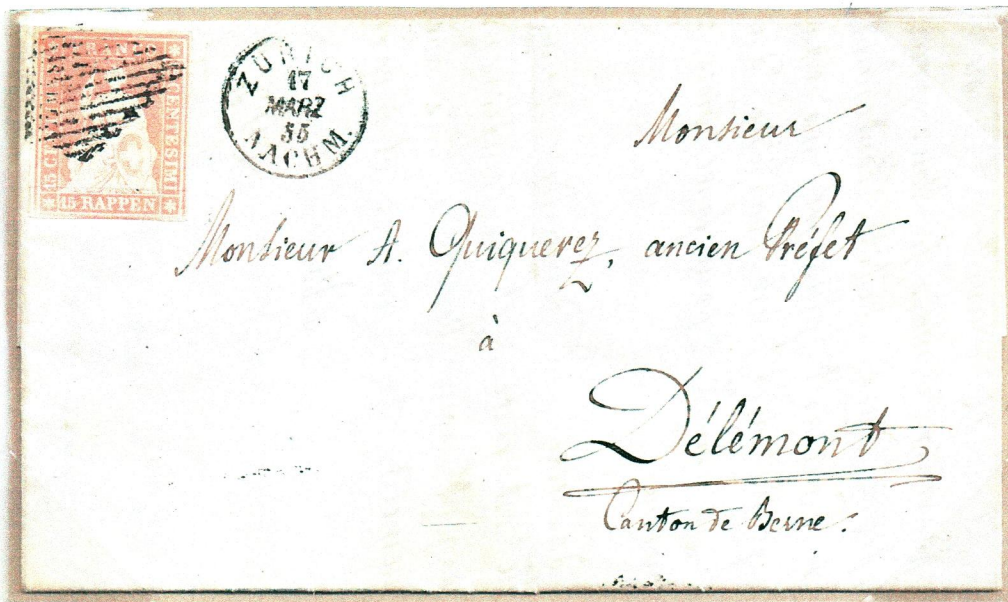 FRANCO
15 C
CENTESIMI
15 RAPPEN
ZÜRICH
17
MÄRZ
55
NACHM.
Monsieur
Monsieur A. Quiquerez, ancien Préfet
à
Délémont
Canton de Berne.